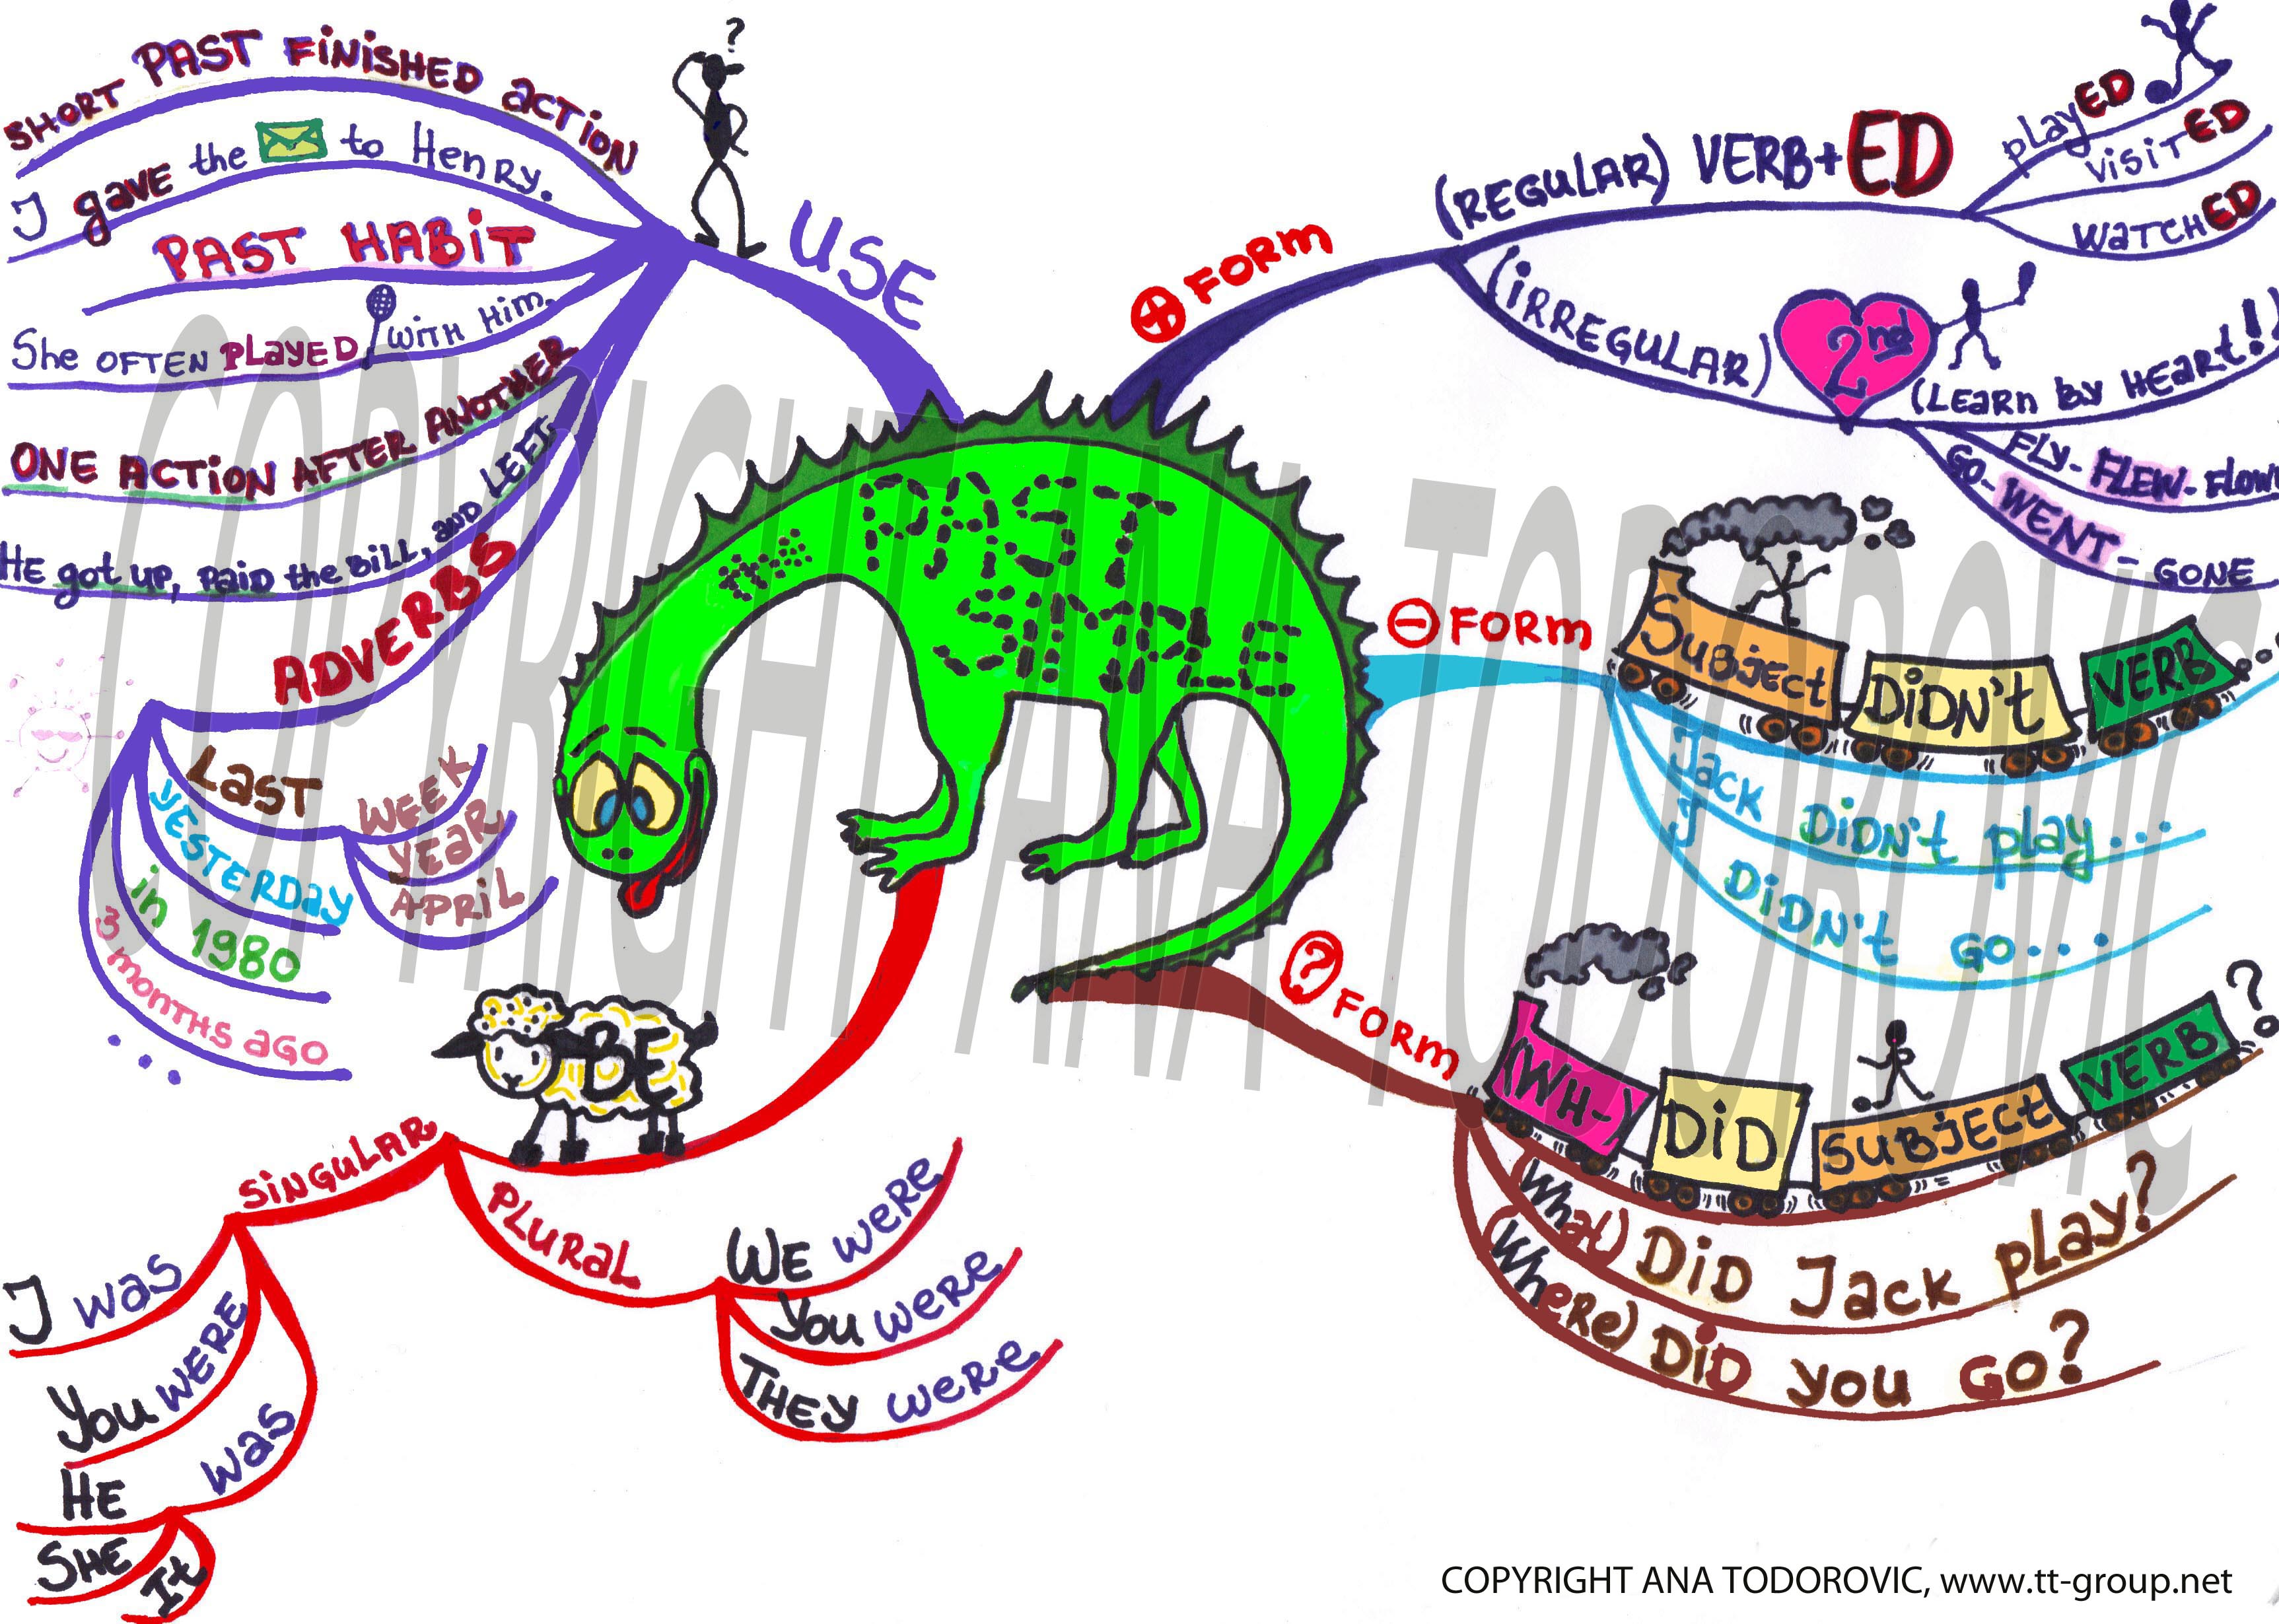 PAST SIMPLE
USE
SHORT PAST FINISHED ACTION
I gave the to Henry.
PAST HABIT
She OFTEN PLAYED with him.
ONE ACTION AFTER ANOTHER
HE got up, paid the bill, and LEFT
ADVERBS
LAST
WEEK
YEAR
APRIL
YESTERDAY
in 1980
3 months ago
...
+ FORM
(REGULAR) VERB+ED
playED
visitED
watchED
(IRREGULAR)
2nd
(Learn by heart!!)
FLY- FLEW- flown
GO- WENT - GONE
- FORM
Subject
DiDN't
VERB
...
Jack DiDN't play...
I DiDN't GO...
? FORM
(WH-)
DiD
SUBJECt
VERB
?
(What) DiD Jack play?
(Where) DiD you GO?
BE
SINGULAR
I was
You were
was
HE
SHE
It
PLURAL
WE were
You were
THEY were
COPYRIGHT ANA TODOROVIC
COPYRIGHT ANA TODOROVIC, www.tt-group.net